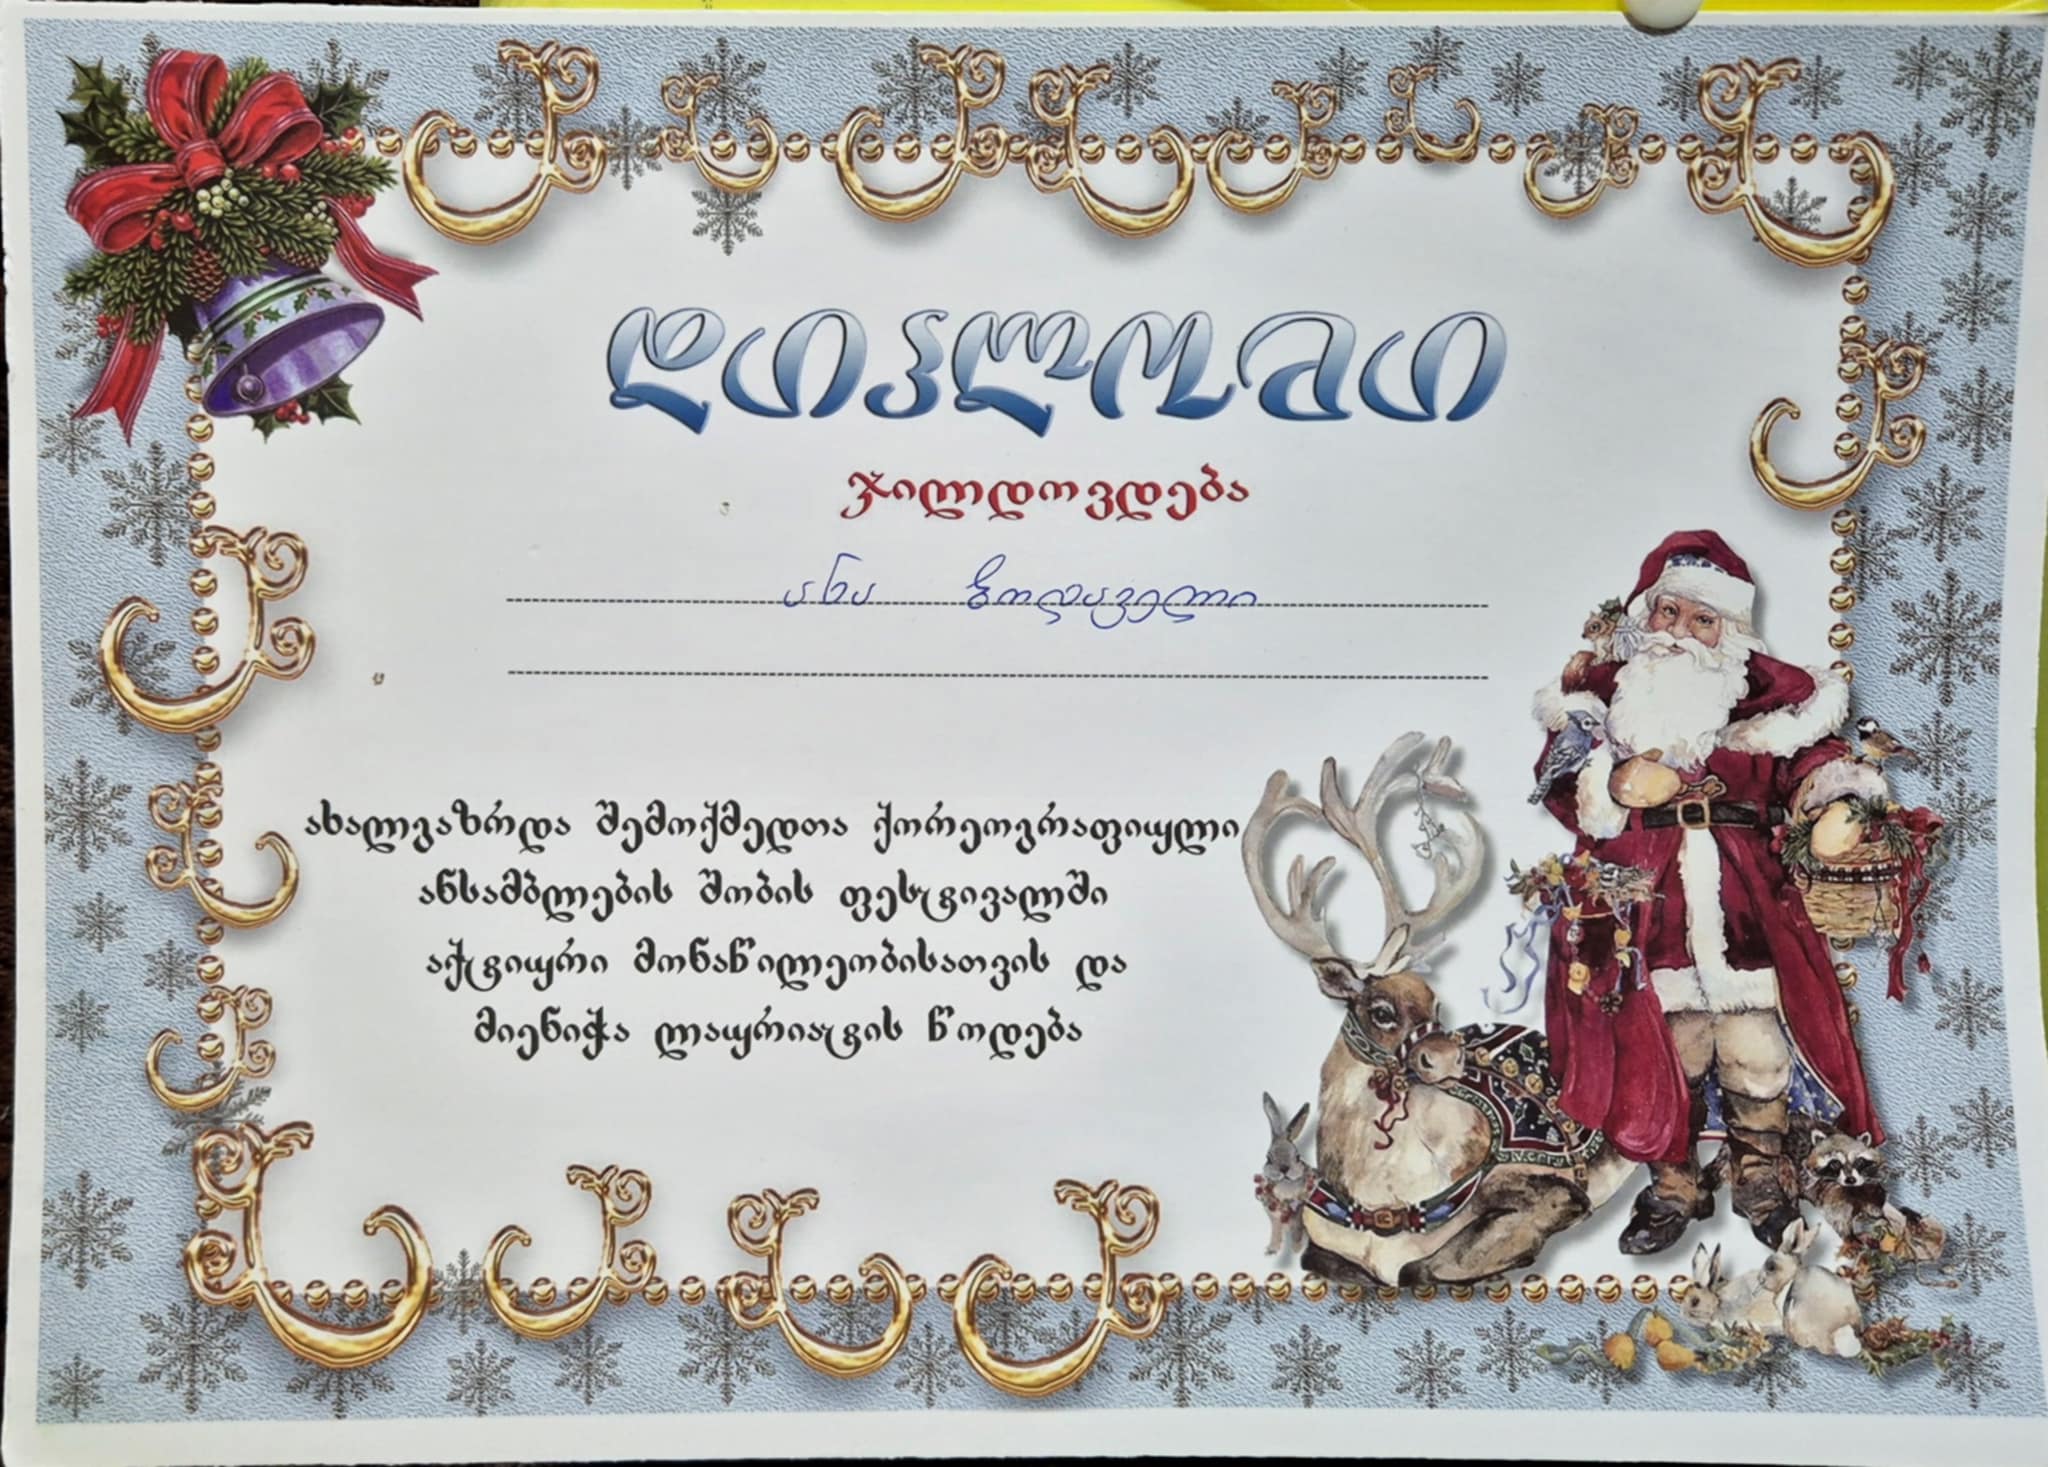 დიპლომი
ჯილდოვდება
ანა ზოდაველი
ახალგაზრდა შემოქმედთა ქორეოგრაფიული
ანსამბლების შობის ფესტივალში
აქტიური მონაწილეობისათვის და
მიენიჭა ლაურიატის წოდება